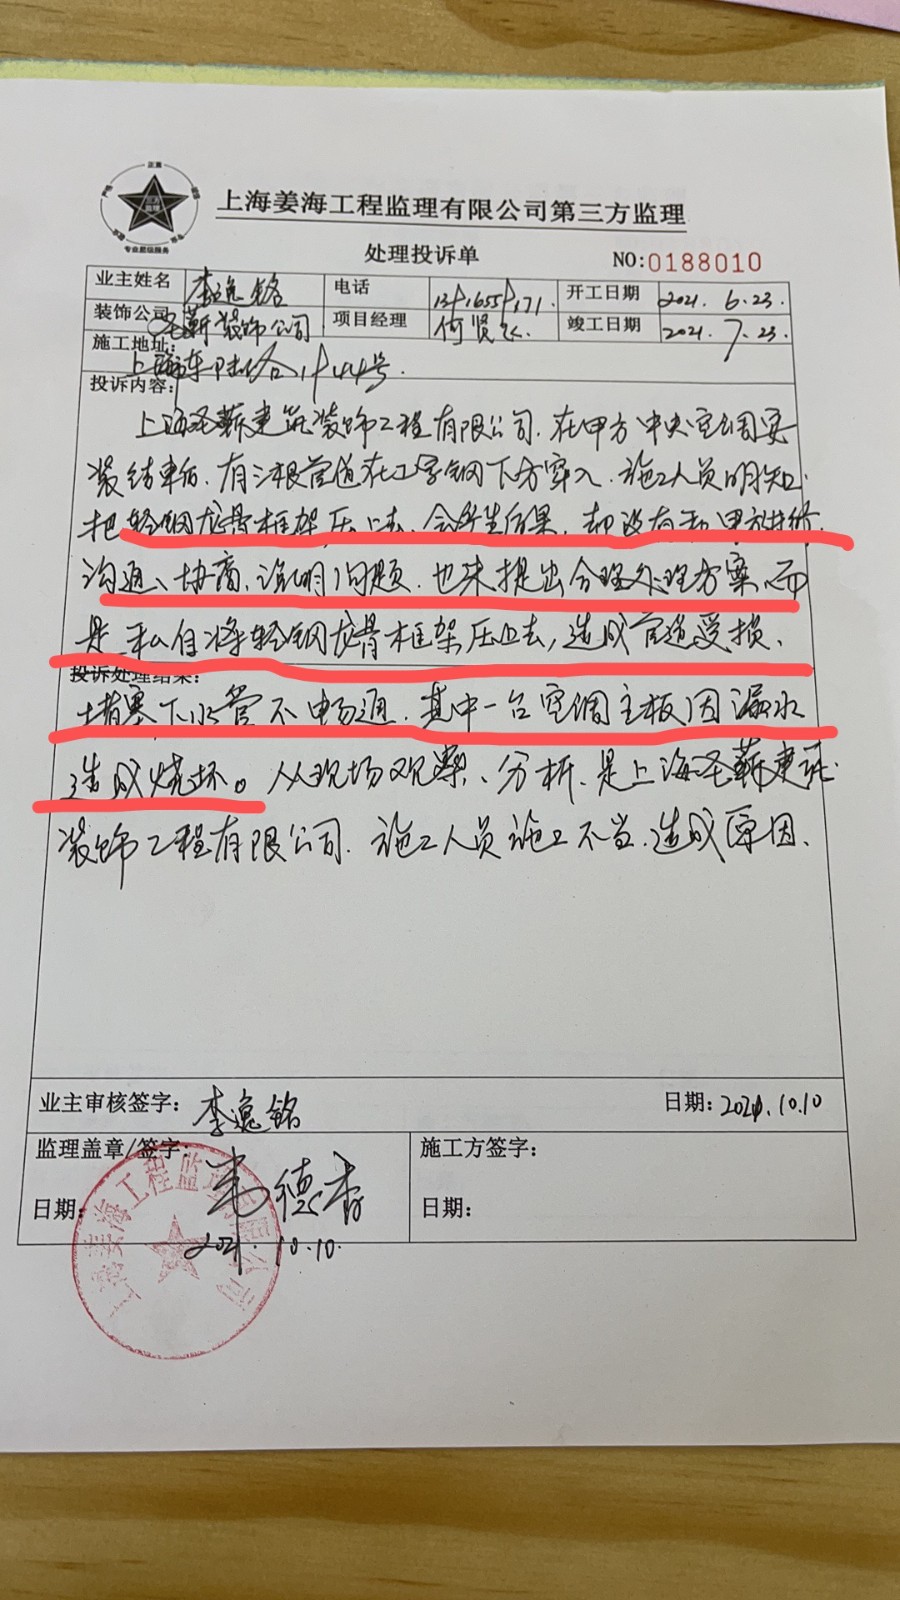 上海姜海工程监理有限公司第三方监理
处理投诉单
NO:0188010
业主姓名 李逸铭 电话 开工日期 2021.6.23.
装饰公司 圣蕲装饰公司 项目经理 何贤 竣工日期 2021.7.23.
施工地址: 上海市 44号.
投诉内容:
上海圣蕲建筑装饰工程有限公司.在甲方中央空调安
装结束后.有三根管道在工字钢下方穿入.施工人员明知
把轻钢龙骨框架压上去.会产生后果.却没有和甲方进行
沟通、协商,说明问题.也未提出合理处理方案、而
是私自将轻钢龙骨框架压上去,造成管道受损.
投诉处理结果:
堵塞下水管不畅通.其中一台空调主板因漏水
造成烧坏。从现场观察、分析.是上海圣蕲建筑
装饰工程有限公司.施工人员施工不当.造成原因.
业主审核签字: 李逸铭 日期: 2021.10.10
监理盖章/签字: 韦德春 施工方签字:
日期: 2021.10.10. 日期:
上海姜海工程监理有限公司